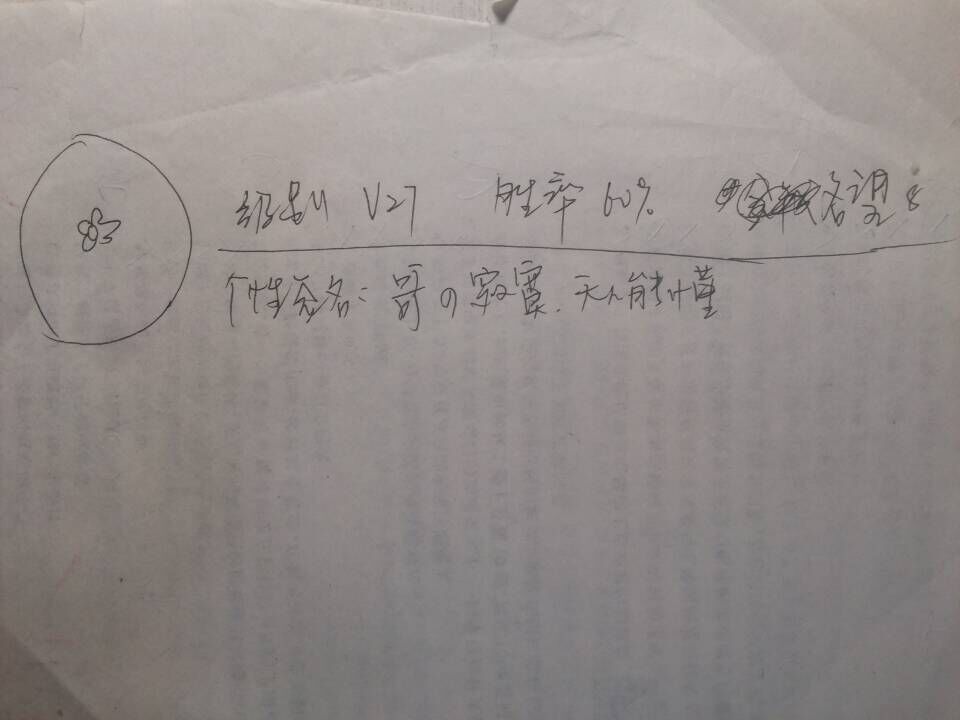 级别 V27 胜率 60% 名望 8
个性签名：哥の寂寞.无人能懂